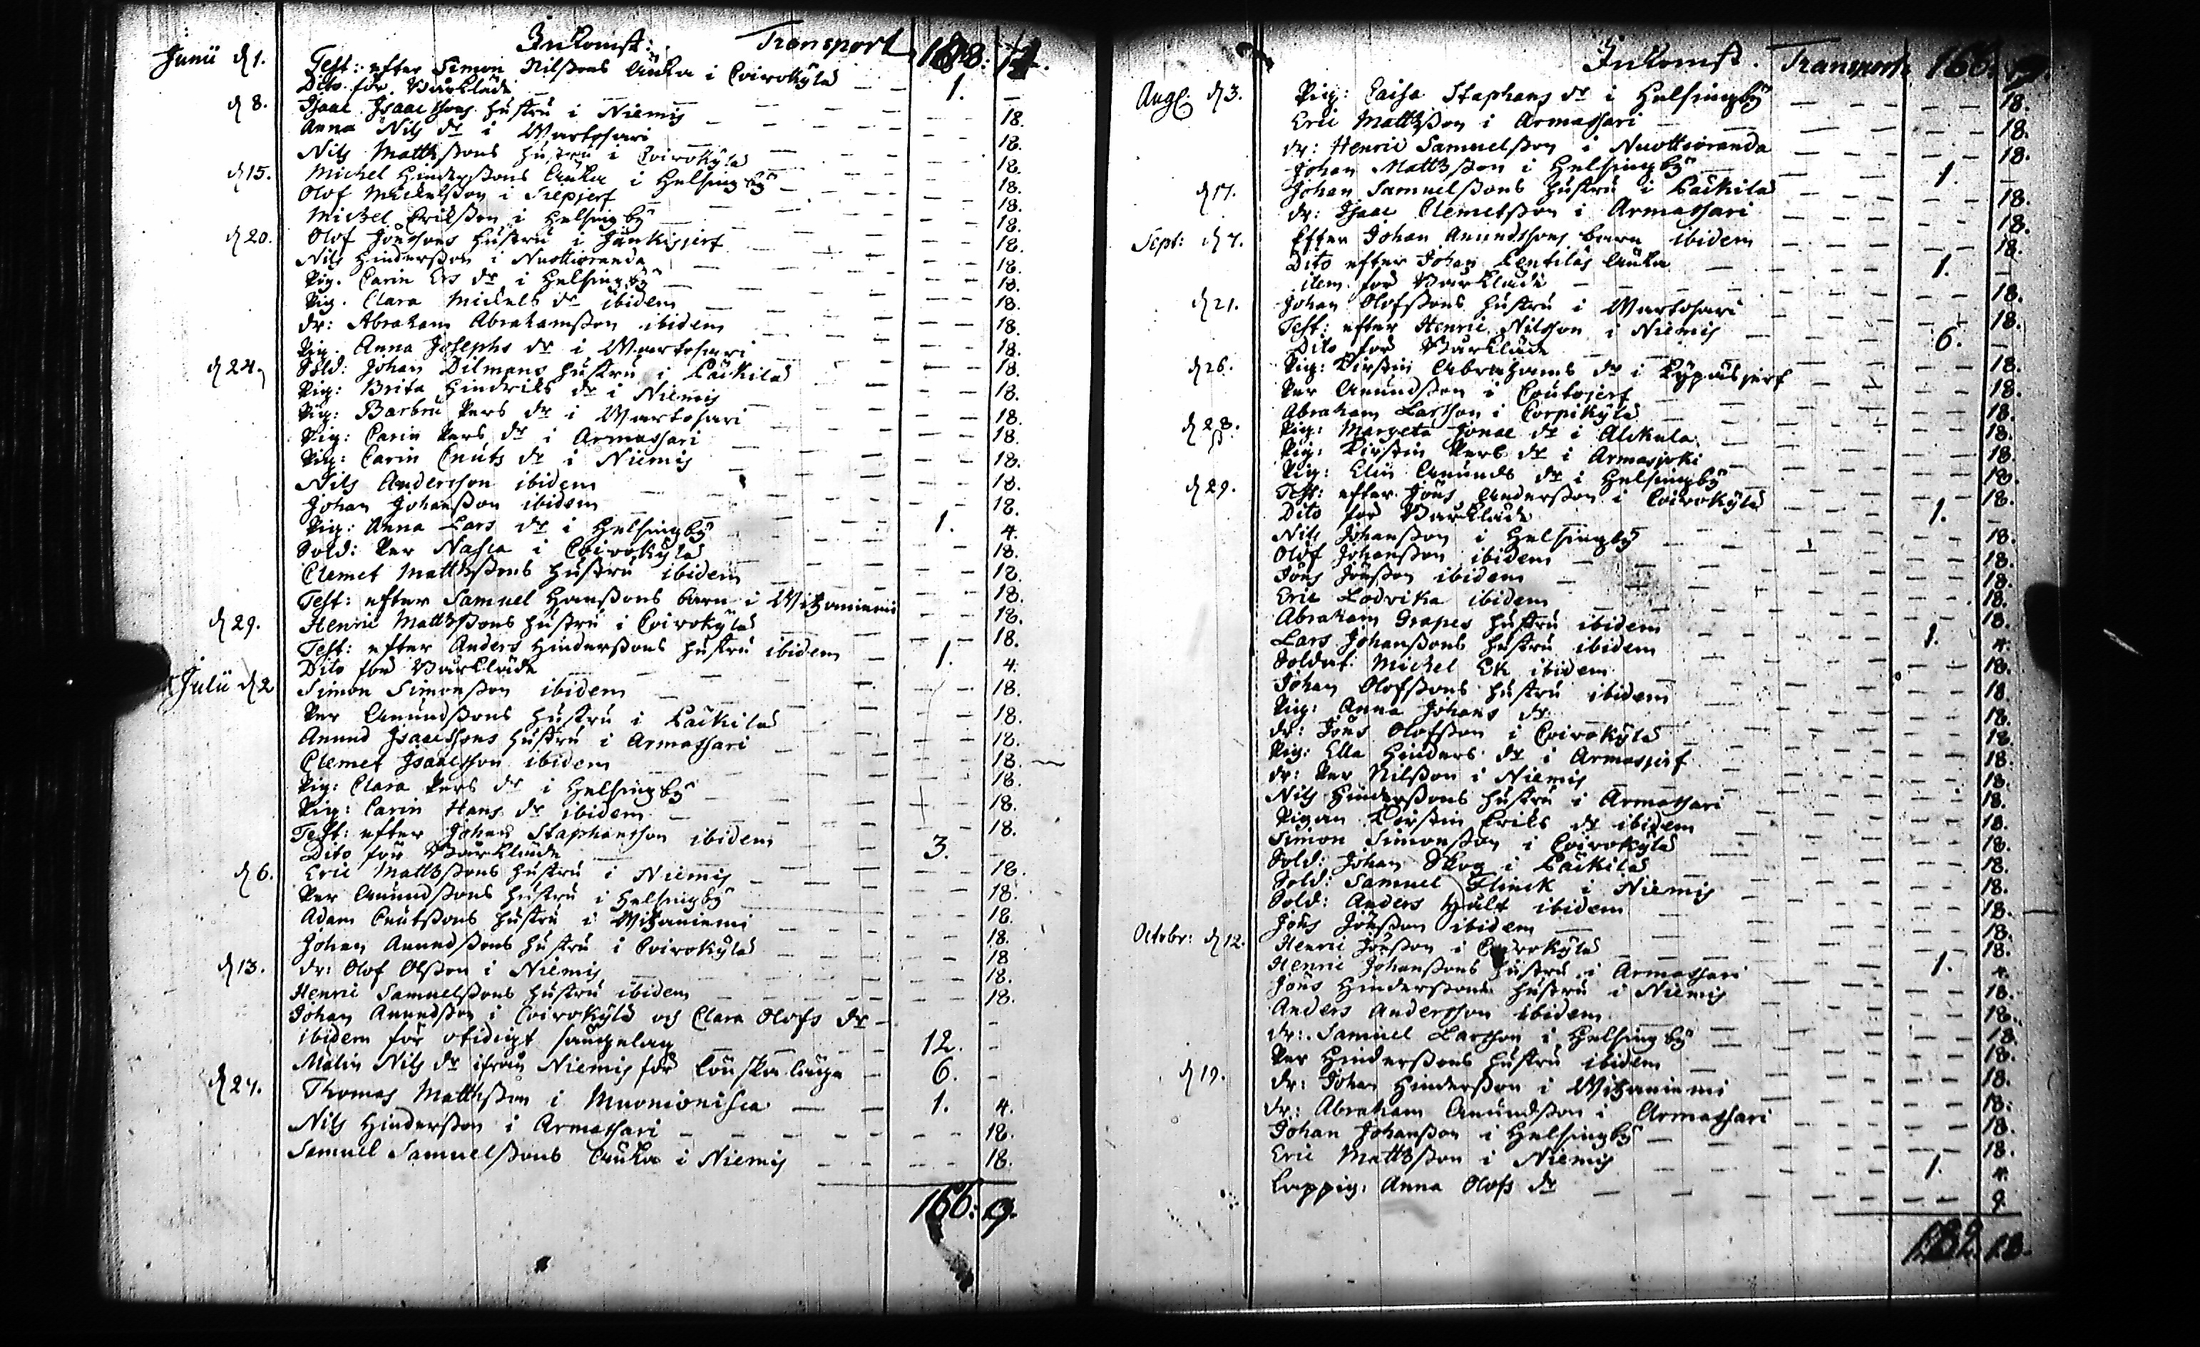 Inkomst: Transport 14.
Junii d 1. Test: efter Simon Nilssons Änka i Coirokylä
Dito för Bårkläde 1. —
d 8. Isaac Isaacssons hustru i Niemis 18.
Anna Nils dr i Martosari 18.
Nils Matthssons hustru i Coirokylä 18.
d 15. Michel Hinderssons Änka i Helsingby 18.
Olof Michelsson i Siepjerf 18.
Michel Eriksson i Helsingby 18.
d 20. Olof Jönssons hustru i Jänkisjerf 18.
Nils Hindersson i Nuottioranda 18.
Pig. Carin Ers dr i Helsingby 18.
Pig. Clara Michels dr ibidem 18.
dr: Abraham Abrahamsson ibidem 18.
Pig. Anna Josephs dr i Martosari 18.
d 24. Sold: Johan Dilmans hustru i Päckilä 18.
Pig: Brita Hindriks dr i Niemis 18.
Pig: Barbru Pers dr i Martosari 18.
Pig: Carin Pers dr i Armassari 18.
Pig: Carin Cnuts dr i Niemis 18.
Nils Andersson ibidem 18.
Johan Johansson ibidem 18.
Pig: Anna Lars dr i Helsingby 1. 4.
Sold: Per Nassa i Coirokylä 18.
Clemet Matthssons hustru ibidem 18.
Test: efter Samuel Hanssons barn i Witzaniemi 18.
d 29. Henric Matthssons hustru i Coirokylä 18.
Test: efter Anders Hinderssons hustru ibidem 18.
Dito för Bårkläde 1. 4.
Julii d 2 Simon Simonsson ibidem 18.
Per Anundssons hustru i Päckilä 18.
Anund Isaacssons hustru i Armassari 18.
Clemet Isaacsson ibidem 18.
Pig: Clara Pers dr i Helsingby 18.
Pig: Carin Hans dr ibidem 18.
Test: efter Johan Staphansson ibidem 18.
Dito för Bårkläde 3. —
d 6. Eric Matthssons hustru i Niemis 18.
Per Anundssons hustru i Helsingby 18.
Adam Cnutssons hustru i Witzaniemi 18.
Johan Anundssons hustru i Coirokylä 18.
d 13. dr: Olof Olsson i Niemis 18.
Henric Samuelssons hustru ibidem 18.
Johan Anundsson i Coirokylä och Clara Olofs dr
ibidem för otidigt sänglag 12. —
Malin Nils dr ifrån Niemis för 6. —
d 27. Thomas Matthsson i Muonionisca 1. 4.
Nils Hindersson i Armassari 18.
Samuel Samuelssons Änka i Niemis 18.
166: 9.
Inkomst. Transport: 166. 9.
Aug: d 3. Pig: Caisa Staphans dr i Helsingby 18.
Eric Matthsson i Armassari 18.
dr: Henric Samuelsson i Nuottioranda 18.
Johan Matthsson i Helsingby 1. —
d 17. Johan Samuelssons hustru i Päckilä 18.
dr: Isaac Clemetsson i Armassari 18.
Sept: d 7. Efter Johan Anundssons barn ibidem 18.
Dito efter Johan Änka 1. —
item för Bårkläde 18.
d 21. Johan Olofssons hustru i Martosari 18.
Test: efter Henric Nilsson i Niemis 6. —
Dito för Bårkläde 18.
d 26. Pig: Kirstin Abrahams dr i Kypäsjerf 18.
Per Anundsson i Coutojerf 18.
Abraham Larsson i Corpikylä 18.
d 28. Pig: Margeta Jonae dr i Alckula 18.
Pig: Kirstin Pers dr i Armasjoki 18.
Pig: Elin Anunds dr i Helsingby 18.
d 29. Test: efter Jöns Andersson i Coirokylä 1. —
Dito för Bårkläde
Nils Johansson i Helsingby 18.
Olof Johansson ibidem 18.
Jöns Jönsson ibidem 18.
Eric Lodvika ibidem 18.
Abraham Grapes hustru ibidem 18.
Lars Johanssons hustru ibidem 1. 4.
Soldat: Michel Ek ibidem 18.
Johan Olofssons hustru ibidem 18.
Pig: Anna Johans dr 18.
dr: Jöns Olofsson i Coirokylä 18.
Pig: Ella Hinders dr i Armasjerf 18.
dr: Per Nilsson i Niemis 18.
Nils Hinderssons hustru i Armassari 18.
Pigan Kirstin Eriks dr ibidem 18.
Simon Simonsson i Coirokylä 18.
Sold: Johan Skog i Päckilä 18.
Sold: Samuel Flinck i Niemis 18.
Sold: Anders Hult ibidem 18.
Jöns Jönsson ibidem 18.
Octobr: d 12. Henric Jönsson i Coirokylä 18.
Henric Johanssons hustru i Armassari 1. 4.
Jöns Hinderssons hustru i Niemis 18.
Anders Andersson ibidem 18.
dr: Samuel Larsson i Helsingby 18.
Per Hinderssons hustru ibidem 18.
d 19. dr: Johan Hindersson i Witzaniemi 18.
dr: Abraham Anundsson i Armassari 18.
Johan Johansson i Helsingby 18.
Eric Matthsson i Niemis 18.
Lappig: Anna Olofs dr 1. 4.
9.
18.